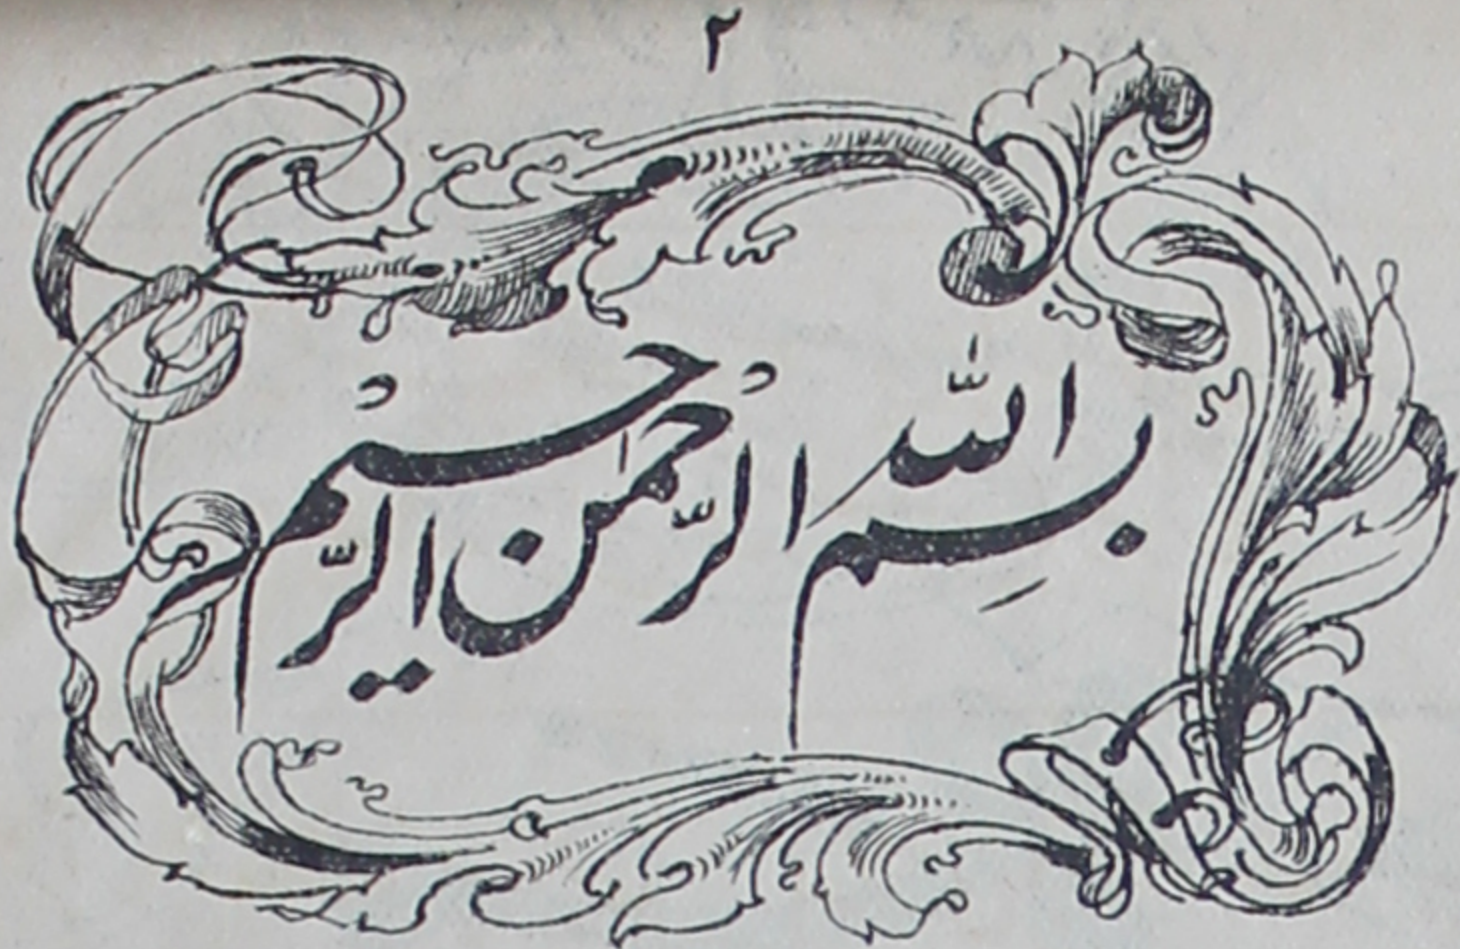 ٢
بسم الله الرحمن الرحيم